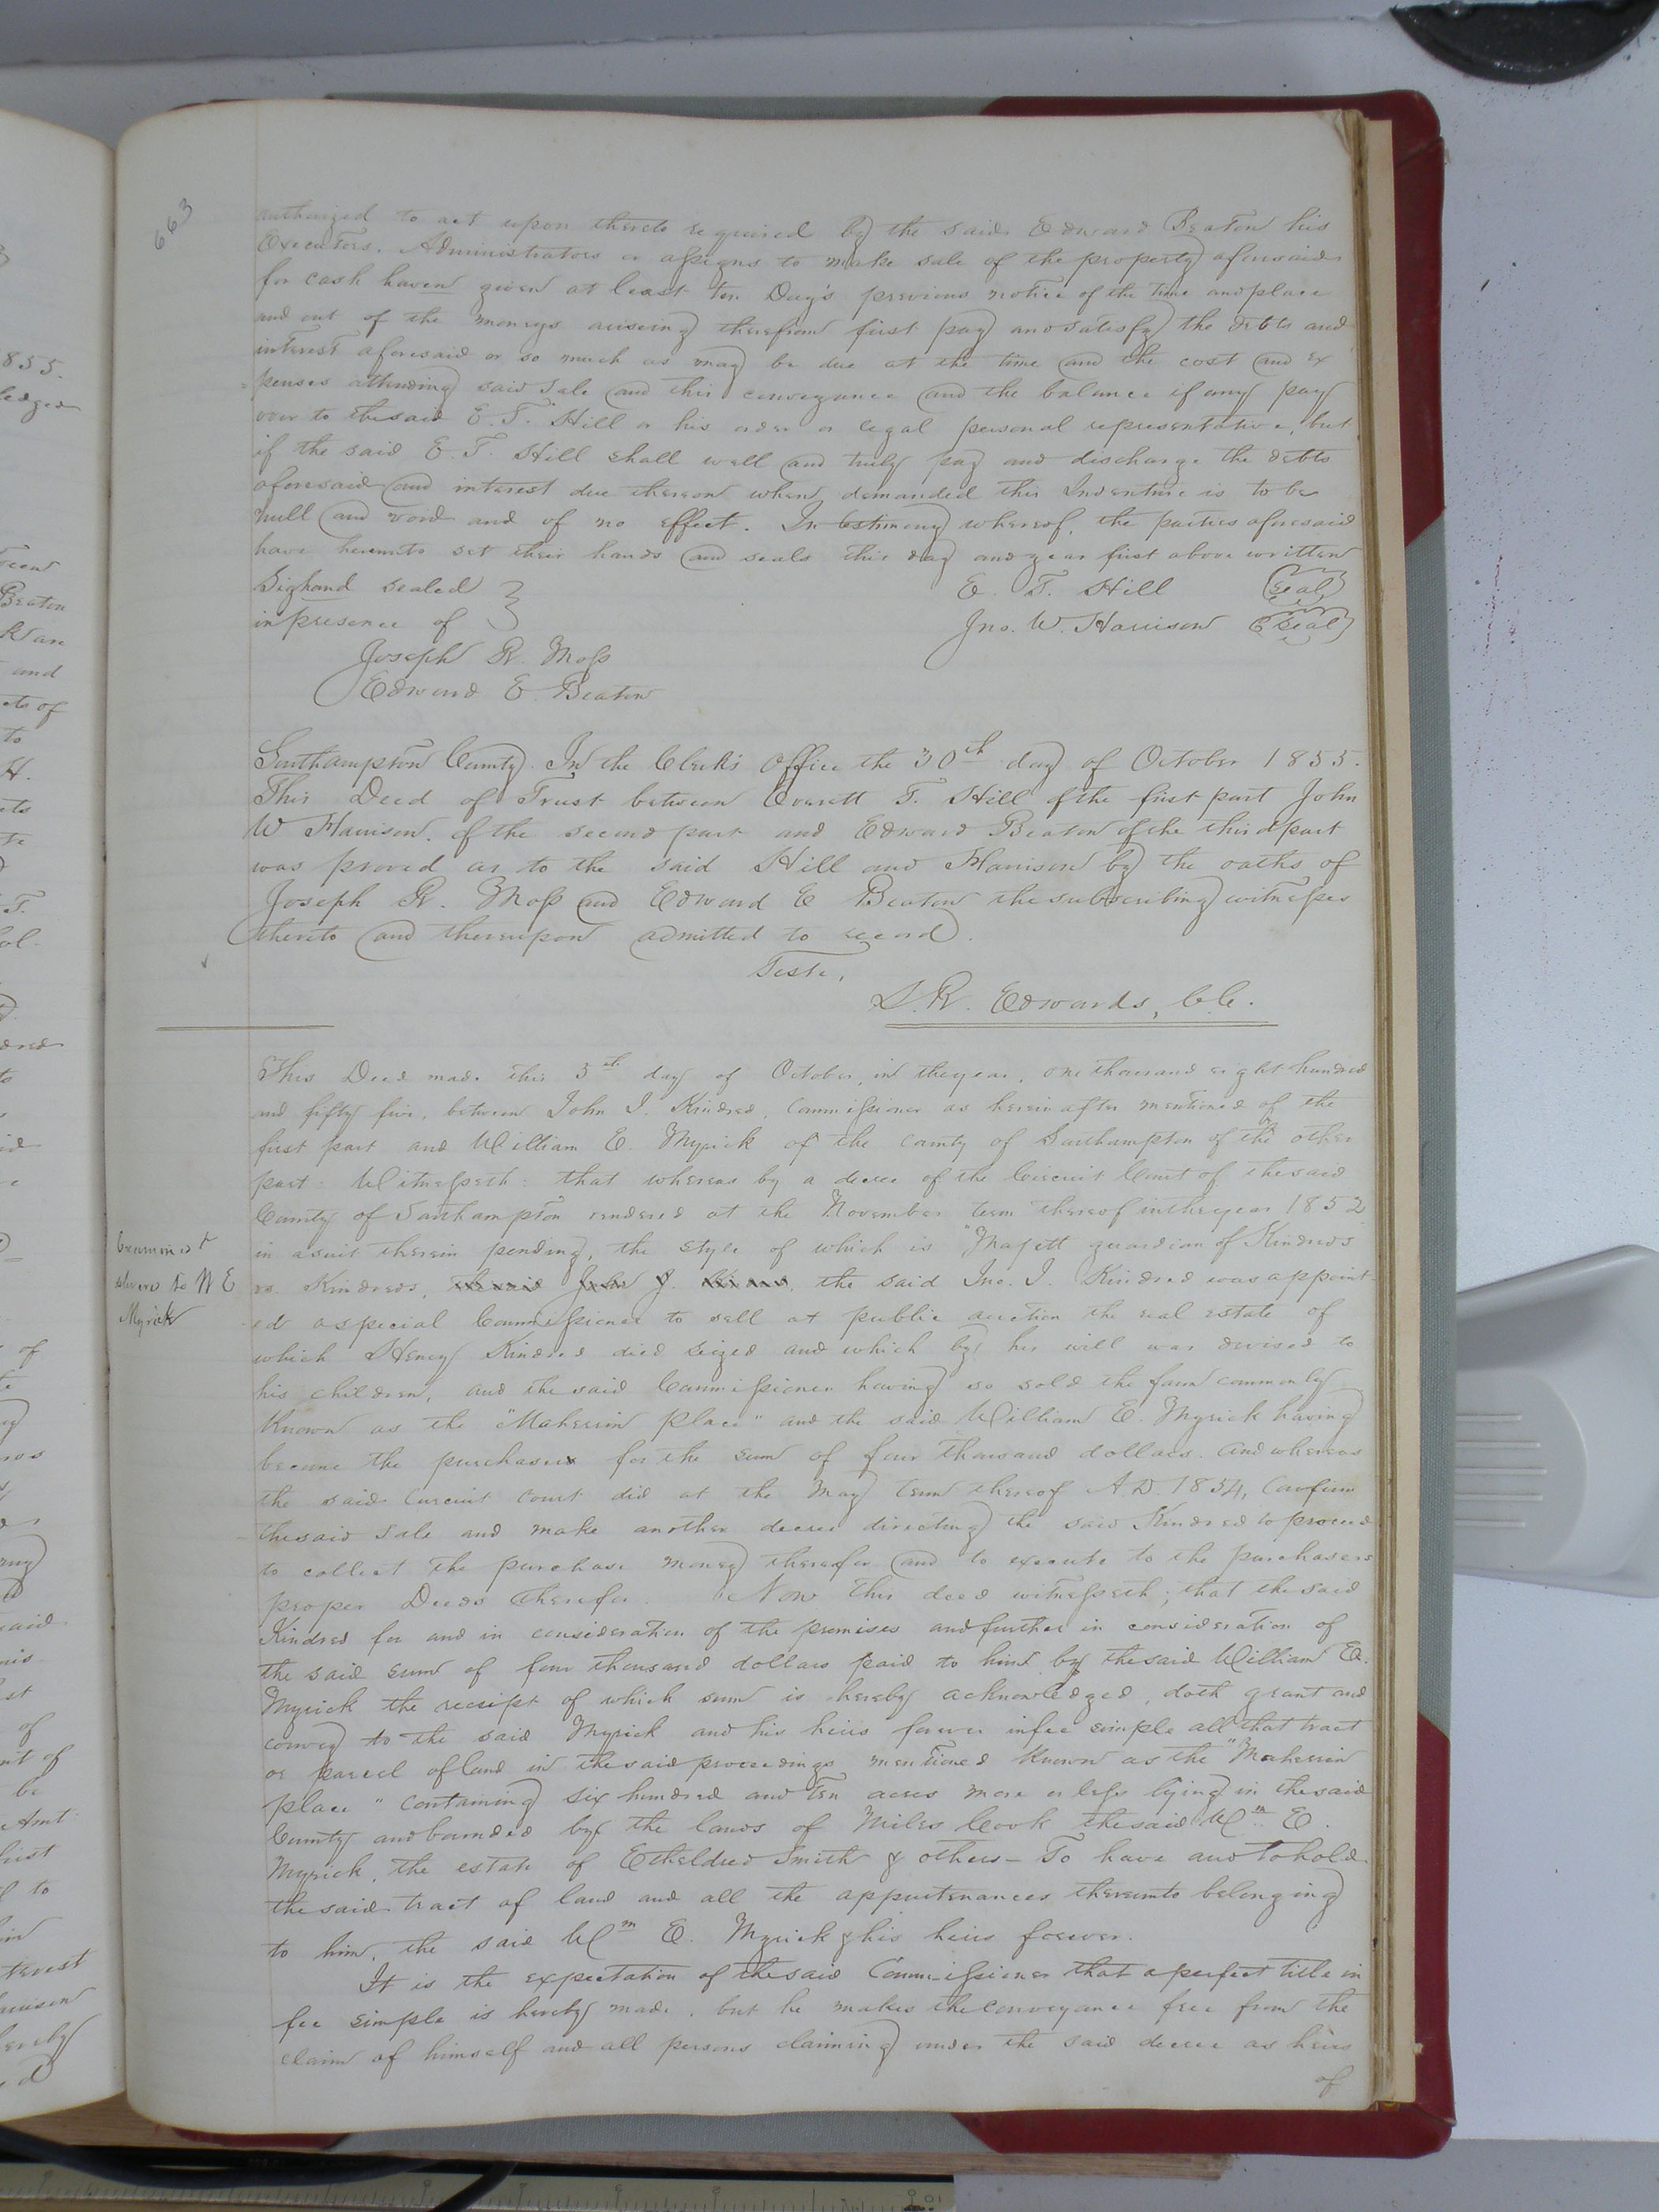 663
authorized to act upon thereto required by the said Edward Beaton his
Executors. Administrators or assigns to make sale of the property aforesaid
for cash haven given at least ten Day's previous notice of the time and place
and out of the moneys ariseing therefrom first pay and satisfy the debts and
interest aforesaid or so much as may be due at the time and the cost and ex
penses attending said sale and this conveyance and the balance if any pay
over to the said E. T. Hill or his order or legal personal representative, but
if the said E. T. Hill shall well and truly pay and discharge the debts
aforesaid and interest due thereon when demanded this Indenture is to be
null and void and of no effect. In testimony whereof, the parties aforesaid
have hereunto set their hands and seals this day and year first above written
sealed E. T. Hill (Seal)
in presence of Jno. W. Harrison (Seal)
Joseph R. Moss
Edward E. Beaton
Southampton County. In the Clerk's Office the 30th day of October 1855.
This Deed of Trust between Everett T. Hill of the first part John
W Harrison. of the second part and Edward Beaton of the third part
was proved as to the said Hill and Harrison by the oaths of
Joseph R. Moss and Edward E Beaton the subscribing witnesses
thereto and thereupon admitted to record.
Teste,
L. R. Edwards, C.C.
This Deed made this 5th day of October, in the year, one thousand eight hundred
and fifty five, between John J. Kindred, Commissioner as herein after mentioned of the
first part and William E. Myrick of the county of Southampton of the other
part: Witnesseth: that whereas by a decree of the Circuit Court of the said
County of Southampton rendered at the November term thereof in the year 1852
in a suit therein pending, the style of which is "Massett guardian of Kindreds
vs. Kindreds, the said John J. the said Jno. J. Kindred was appoint-
ed a special Commissioner to sell at public auction the real estate of
which Henry Kindred died seized and which by his will was devised to
his children, and the said Commissioner having so sold the farm commonly
Known as the "Maherrin place" and the said William E. Myrick having
became the purchaser for the sum of four thousand dollars. And whereas
the said Curcuit court did at the May term thereof A D 1854, Confirm
the said sale and make another decree directing the said Kindred to proceed
to collect the purchase money therefor and to execute to the purchasers
proper Deeds therefor. Now this deed witnesseth; that the said
Kindred for and in consideration of the premises and further in consideration of
the said sum of four thousand dollars paid to him by the said William E.
Myrick the receipt of which sum is hereby acknowledged, doth grant and
convey to the said Myrick and his heirs forever in fee simple all that tract
or parcel of land in the said proceedings mentioned Known as the "Maherrin
place" containing six hundred and ten acres more or less lying in the said
County and bounded by the lands of Miles Cook the said Wm E.
Myrick, the estate of Etheldred Smith & others - To have and to hold
the said tract of land and all the appurtenances thereunto belonging
to him, the said Wm E. Myrick & his heirs forever.
It is the expectation of the said Commissioner that a perfect title in
fee simple is hereby made, but he makes the conveyance free from the
claim of himself and all persons claiming under the said decree as heirs
of
to W E
Myrick